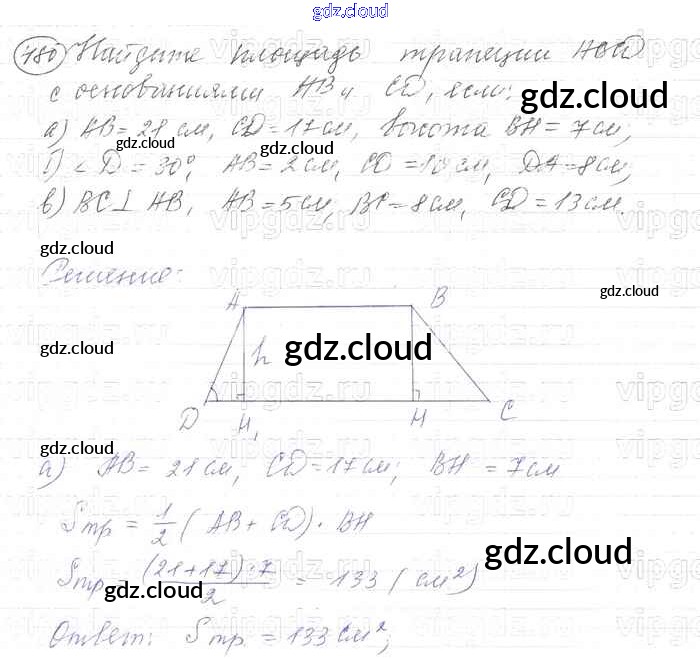 gdz.cloud
480 Найдите площадь трапеции ABCD
с основаниями AB и CD, если:
gdz.cloud
а) AB = 21 см, CD = 17 см, высота BH = 7 см;
gdz.cloud gdz.cloud
б) ∠D = 30°, AB = 2 см, CD = 10 см, DA = 8 см;
в) BC ⊥ AB, AB = 5 см, BC = 8 см, CD = 13 см.
gdz.cloud
Решение:
gdz.cloud
A B
gdz.cloud h gdz.cloud
D H₁ H C
gdz.cloud gdz.cloud
а) AB = 21 см; CD = 17 см; BH = 7 см
Sтр = 1/2 (AB + CD) · BH
gdz.cloud
Sтр = (21+17)·7/2 = 133 (см²)
gdz.cloud gdz.cloud
Ответ: Sтр = 133 см²;